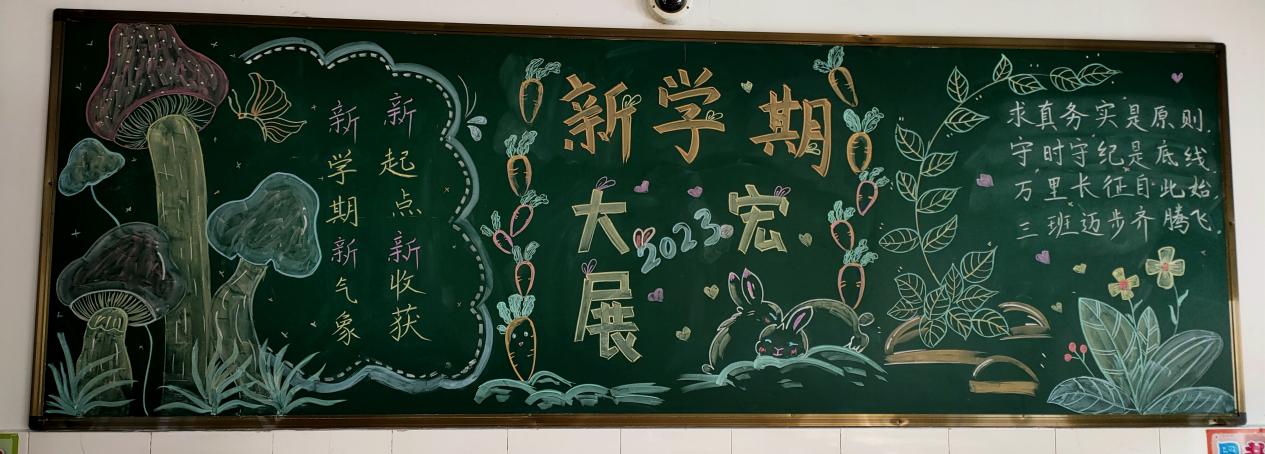 新起点新收获
新学期新气象
新学期
大展
2023
宏
求真务实是原则,
守时守纪是底线
万里长征自此始,
三班迈步齐腾飞。